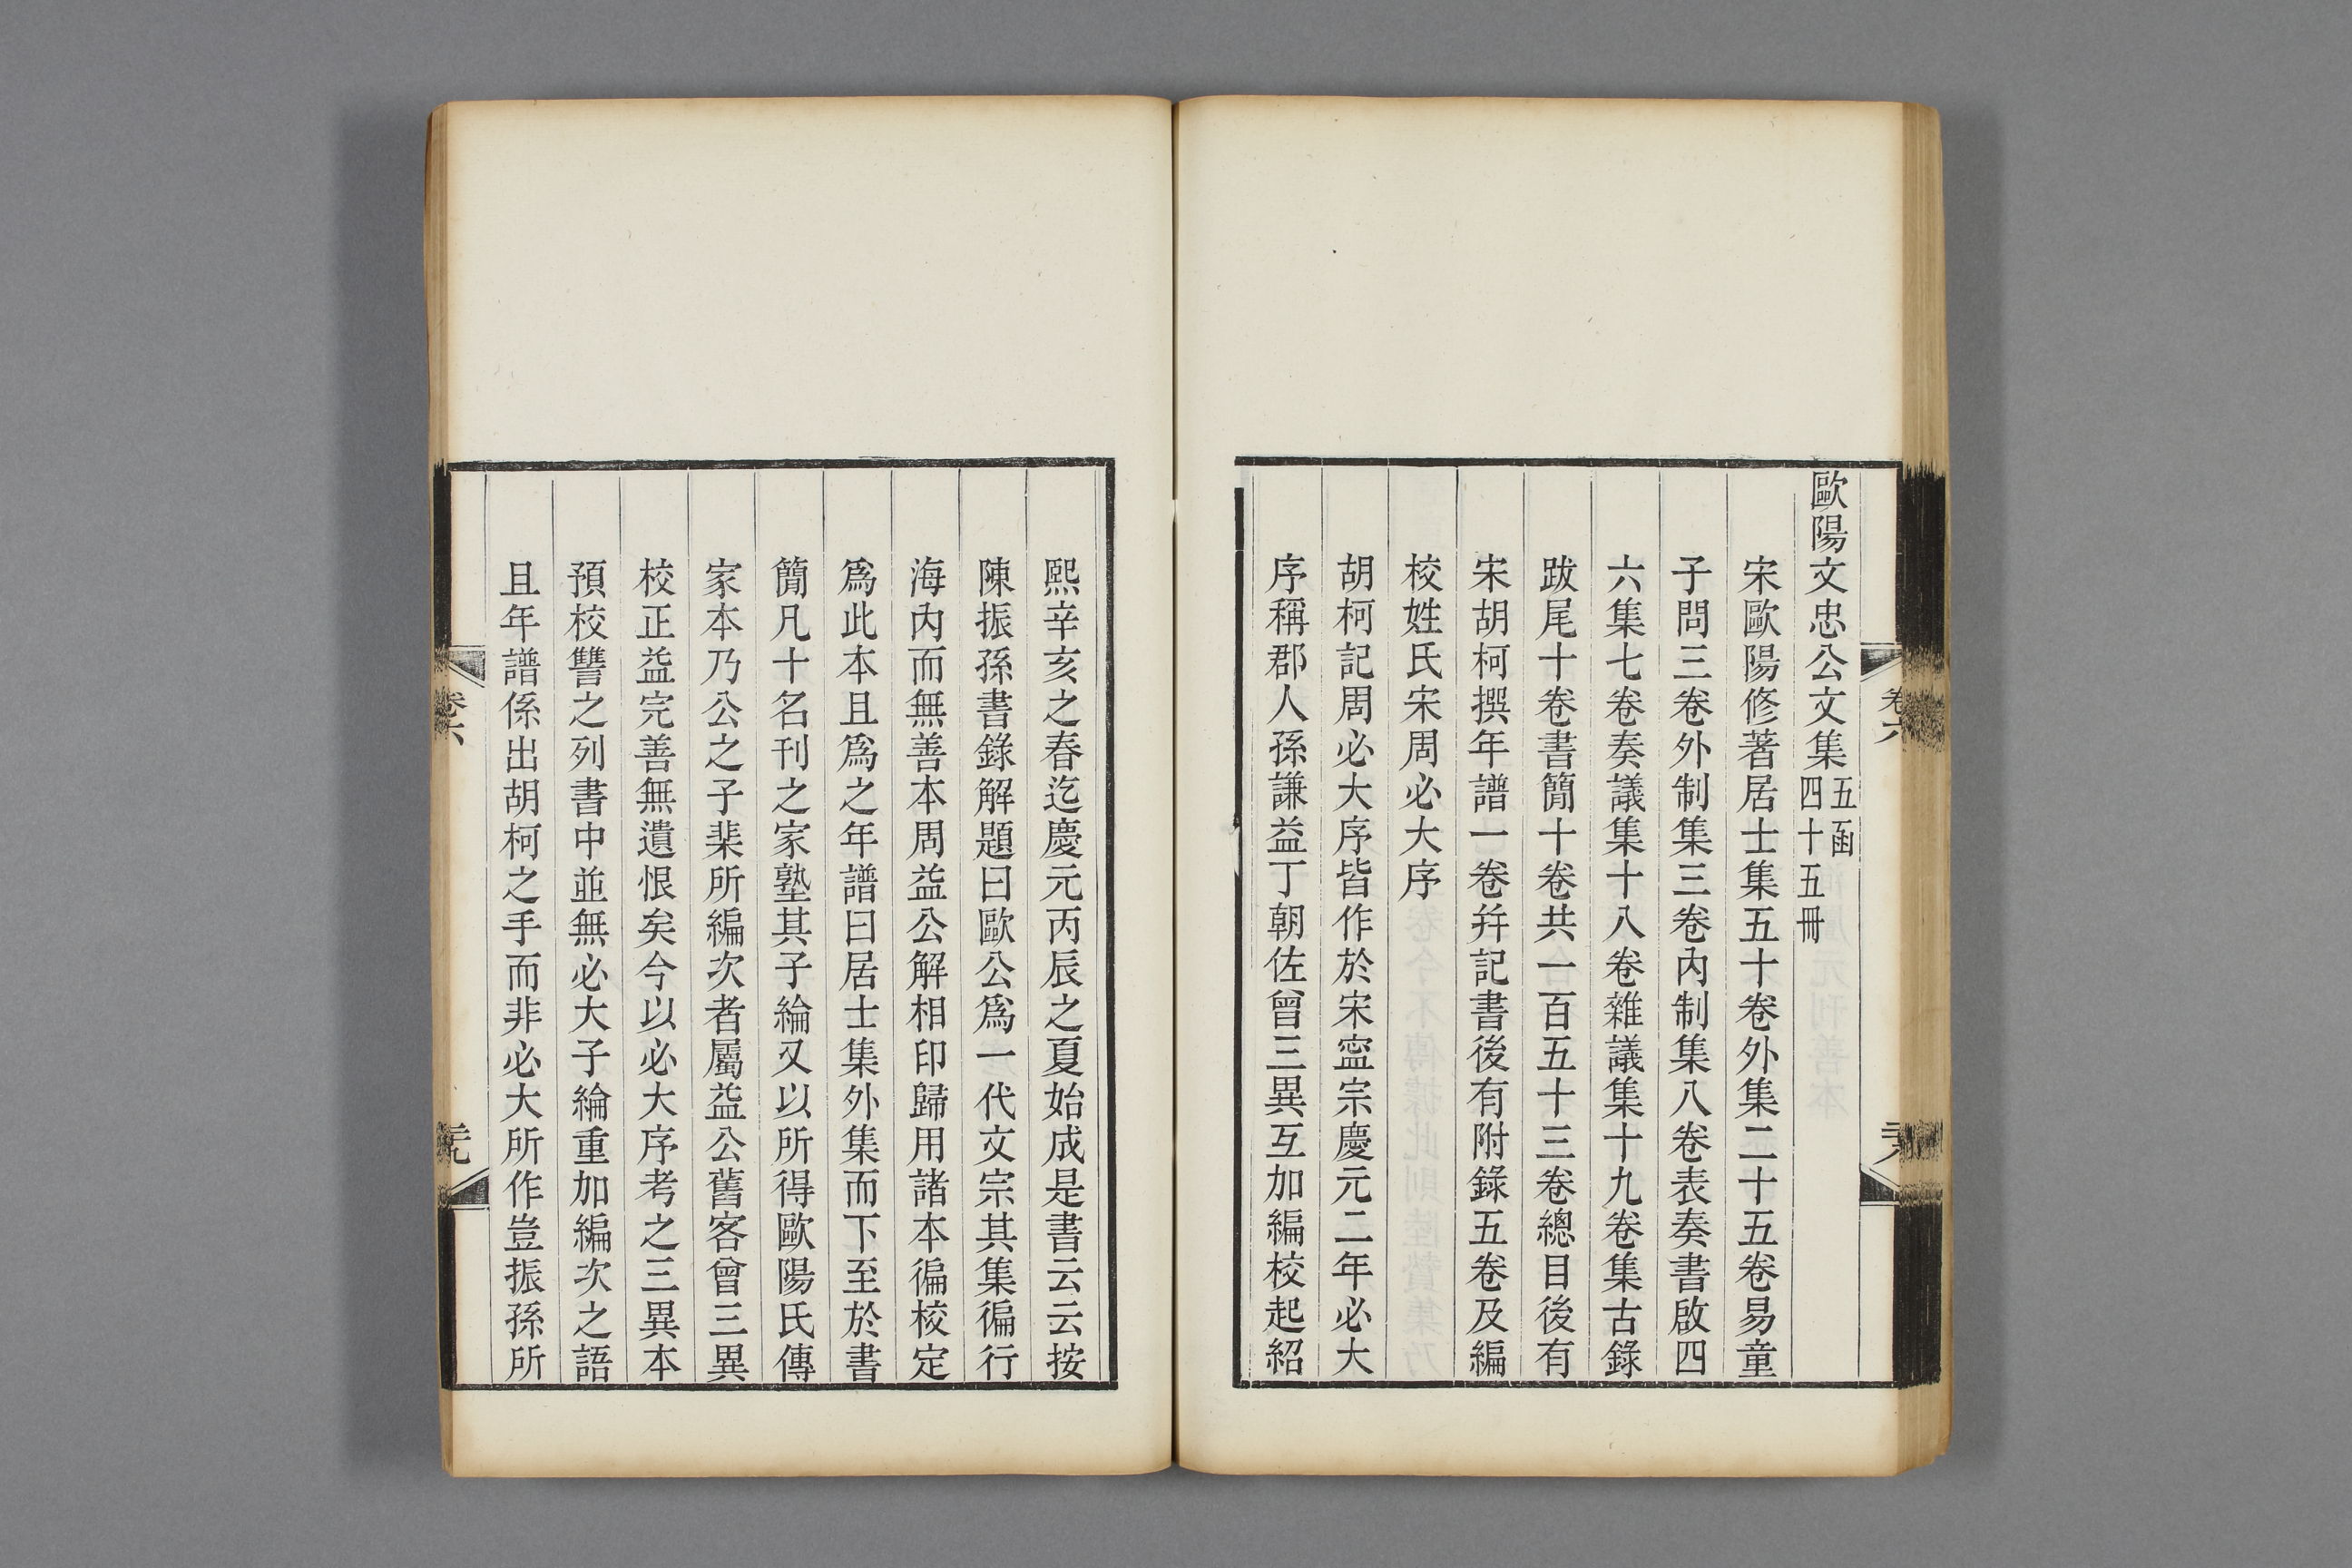 歐陽文忠公文集五函四十五冊
宋歐陽修著居士集五十卷外集二十五卷易童
子問三卷外制集三卷內制集八卷表奏書啟四
六集七卷奏議集十八卷雜議集十九卷集古錄
跋尾十卷書簡十卷共一百五十三卷總目後有
宋胡柯撰年譜一卷并記書後有附錄五卷及編
校姓氏宋周必大序
胡柯記周必大序皆作於宋寍宗慶元二年必大
序稱郡人孫謙益丁朝佐曾三異互加編校起紹
熙辛亥之春迄慶元丙辰之夏始成是書云云按
陳振孫書錄解題曰歐公爲一代文宗其集徧行
海內而無善本周益公解相印歸用諸本徧校定
爲此本且爲之年譜曰居士集外集而下至於書
簡凡十名刊之家塾其子綸又以所得歐陽氏傳
家本乃公之子棐所編次者屬益公舊客曾三異
校正益完善無遺恨矣今以必大序考之三異本
預校讐之列書中並無必大子綸重加編次之語
且年譜係出胡柯之手而非必大所作豈振孫所
卷六